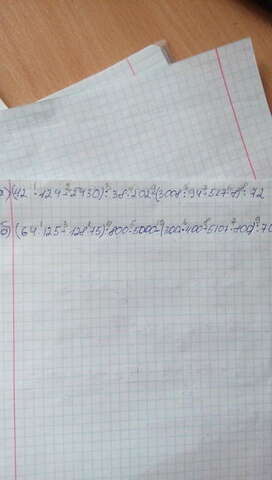 а) (42 · 424 - 2430) : 38 · 202 - (3001 · 94 - 517 · 48) : 72
б) (64 · 125 - 128 · 75) : 800 · 5000 - (300 · 400 - 5107 · 800) : 70